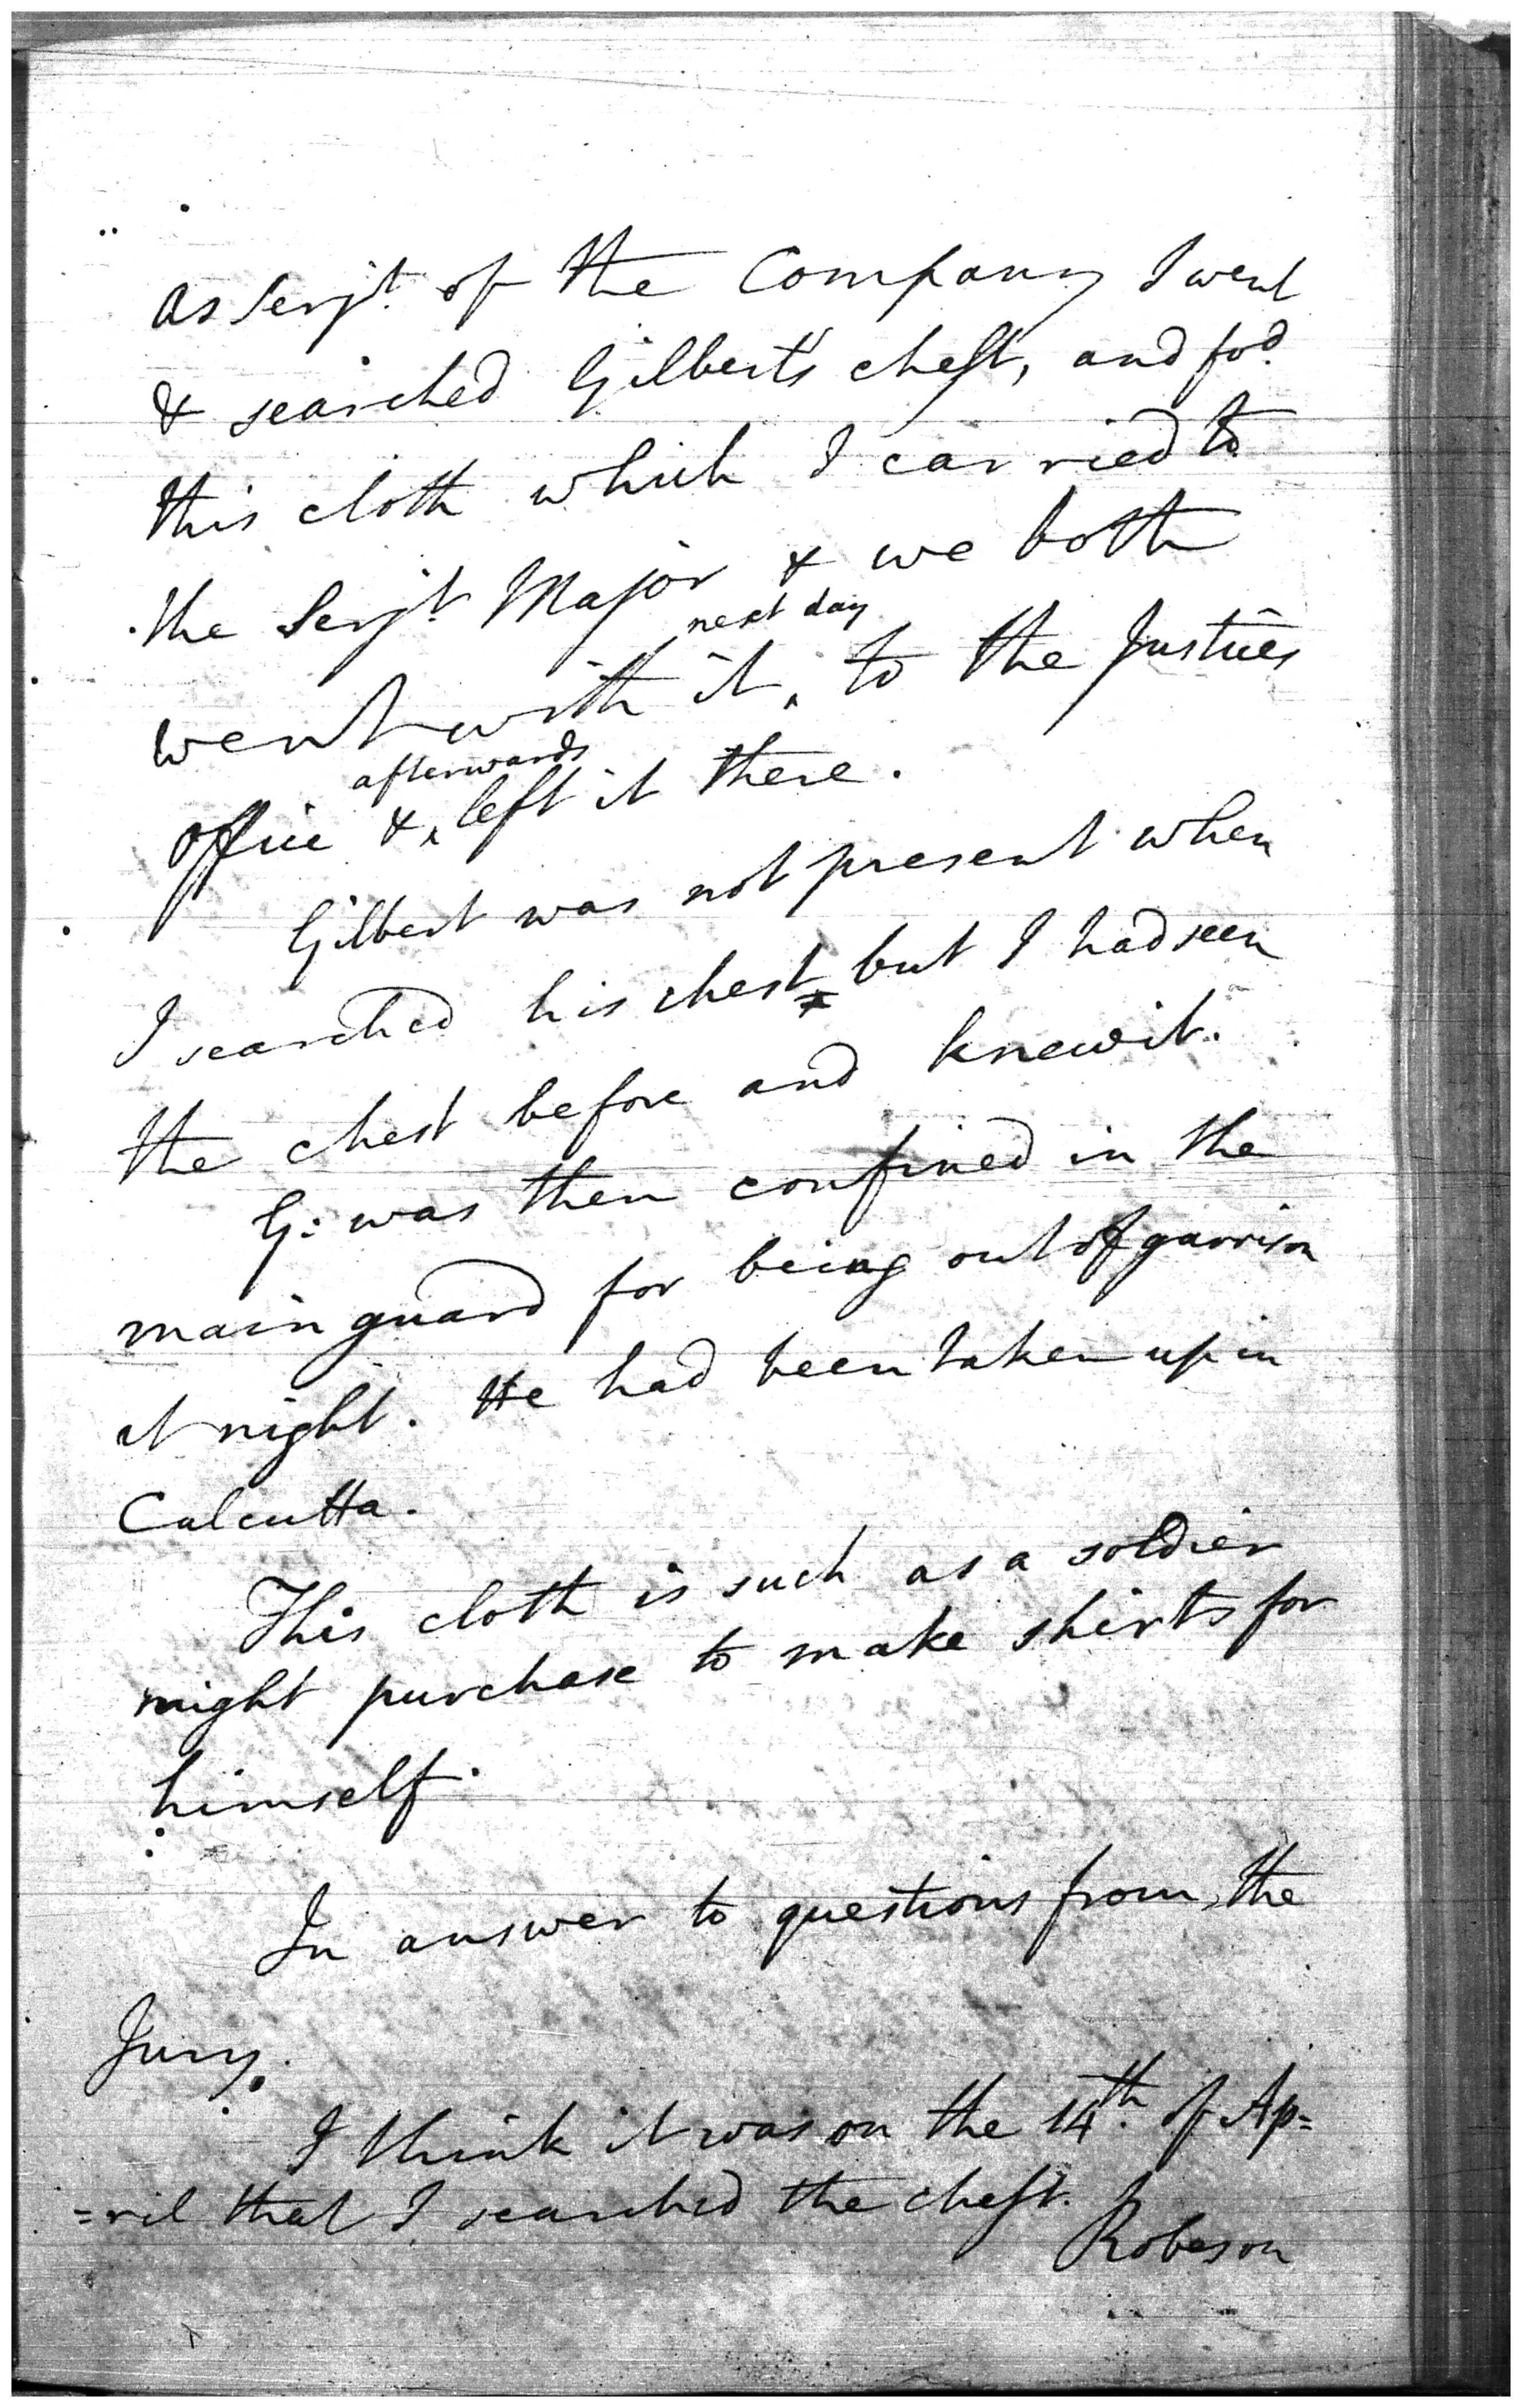 as Serjt. of the Company I went
& searched Gilbert's chest, and fod.
this cloth which I carried to
the Serjt. Major & we both
next day
went with it, to the Justices
afterwards
office & left it there.
Gilbert was not present when
I searched his chest but I had seen
the chest before and knew it.
G: was then confined in the
main guard for being out of garrison
at night. He had been taken up in
Calcutta.
This cloth is such as a soldier
might purchase to make shirts for
himself.
In answer to questions from the
Jury.
I think it was on the 14th. of Ap=
=ril that I searched the chest.
Robeson